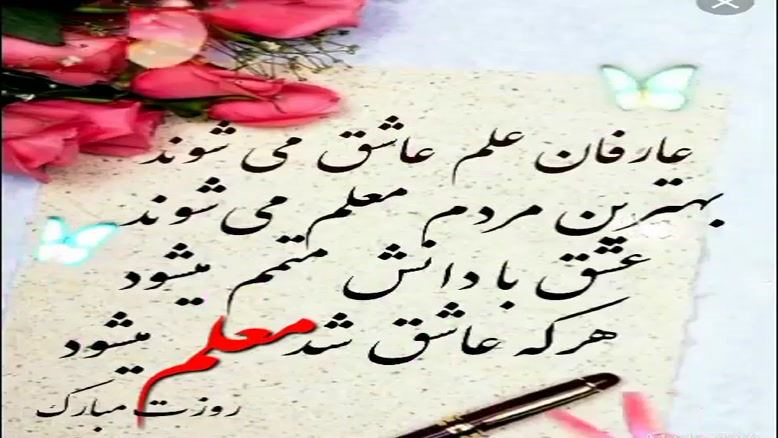 عارفان علم عاشق می شوند
بهترین مردم معلم می شوند
عشق با دانش متمم میشود
هرکه عاشق شد معلم میشود
روزت مبارک